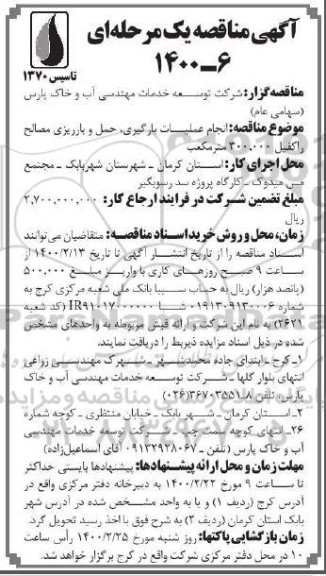 آگهی مناقصه یک مرحله‌ای
۶-۱۴۰۰
تاسیس ۱۳۷۰
مناقصه‌گزار: شرکت توسعه خدمات مهندسی آب و خاک پارس
(سهامی عام)
موضوع مناقصه: انجام عملیات بارگیری، حمل و بارریزی مصالح
راکفیل ۳۰۰.۰۰۰ مترمکعب
محل اجرای کار: استان کرمان - شهرستان شهربابک - مجتمع
مس میدوک - کارگاه پروژه سد رسوبگیر
مبلغ تضمین شرکت در فرایند ارجاع کار: ۲,۷۰۰,۰۰۰,۰۰۰
ریال
زمان، محل و روش خرید اسناد مناقصه: متقاضیان می‌توانند
اسناد مناقصه را از تاریخ انتشار آگهی تا تاریخ ۱۴۰۰/۲/۱۳ از
ساعت ۹ صبح روزهای کاری با واریز مبلغ ۵۰۰,۰۰۰
(پانصد هزار) ریال به حساب سیبا بانک ملی شعبه مرکزی کرج به
شماره ۰۱۹۱۳۰۹۱۳۰۰۰۶ شبا (کد شعبه
۲۶۷۱) به نام این شرکت و ارائه فیش مربوطه به واحدهای مشخص
شده در ذیل اسناد مزایده ذیربط را دریافت نمایند.
۱- کرج - ابتدای جاده محمدشهر - شهرک مهندسی زراعی
انتهای بلوار گلها - شرکت توسعه خدمات مهندسی آب و خاک
پارس، تلفن ۸-۳۶۷۰۳۵۵۱ (۰۲۶)
۲- استان کرمان - شهر بابک - خیابان منتظری - کوچه شماره
۲۶- انتهای کوچه سمت چپ - شرکت توسعه خدمات مهندسی
آب و خاک پارس (تلفن - ۰۹۱۳۲۹۲۸۰۶۷ آقای اسماعیل‌زاده)
مهلت زمان و محل ارائه پیشنهادها: پیشنهادها بایستی حداکثر
تا ساعت ۹ مورخ ۱۴۰۰/۲/۲۲ به دبیرخانه دفتر مرکزی واقع در
آدرس کرج (ردیف ۱) و یا به واحد مشخص شده در آدرس شهر
بابک استان کرمان (ردیف ۲) به شرح فوق با اخذ رسید تحویل گردد.
زمان بازگشایی پاکتها: روز شنبه مورخ ۱۴۰۰/۲/۲۵ رأس ساعت
۱۰ در محل دفتر مرکزی شرکت واقع در کرج برگزار خواهد شد.